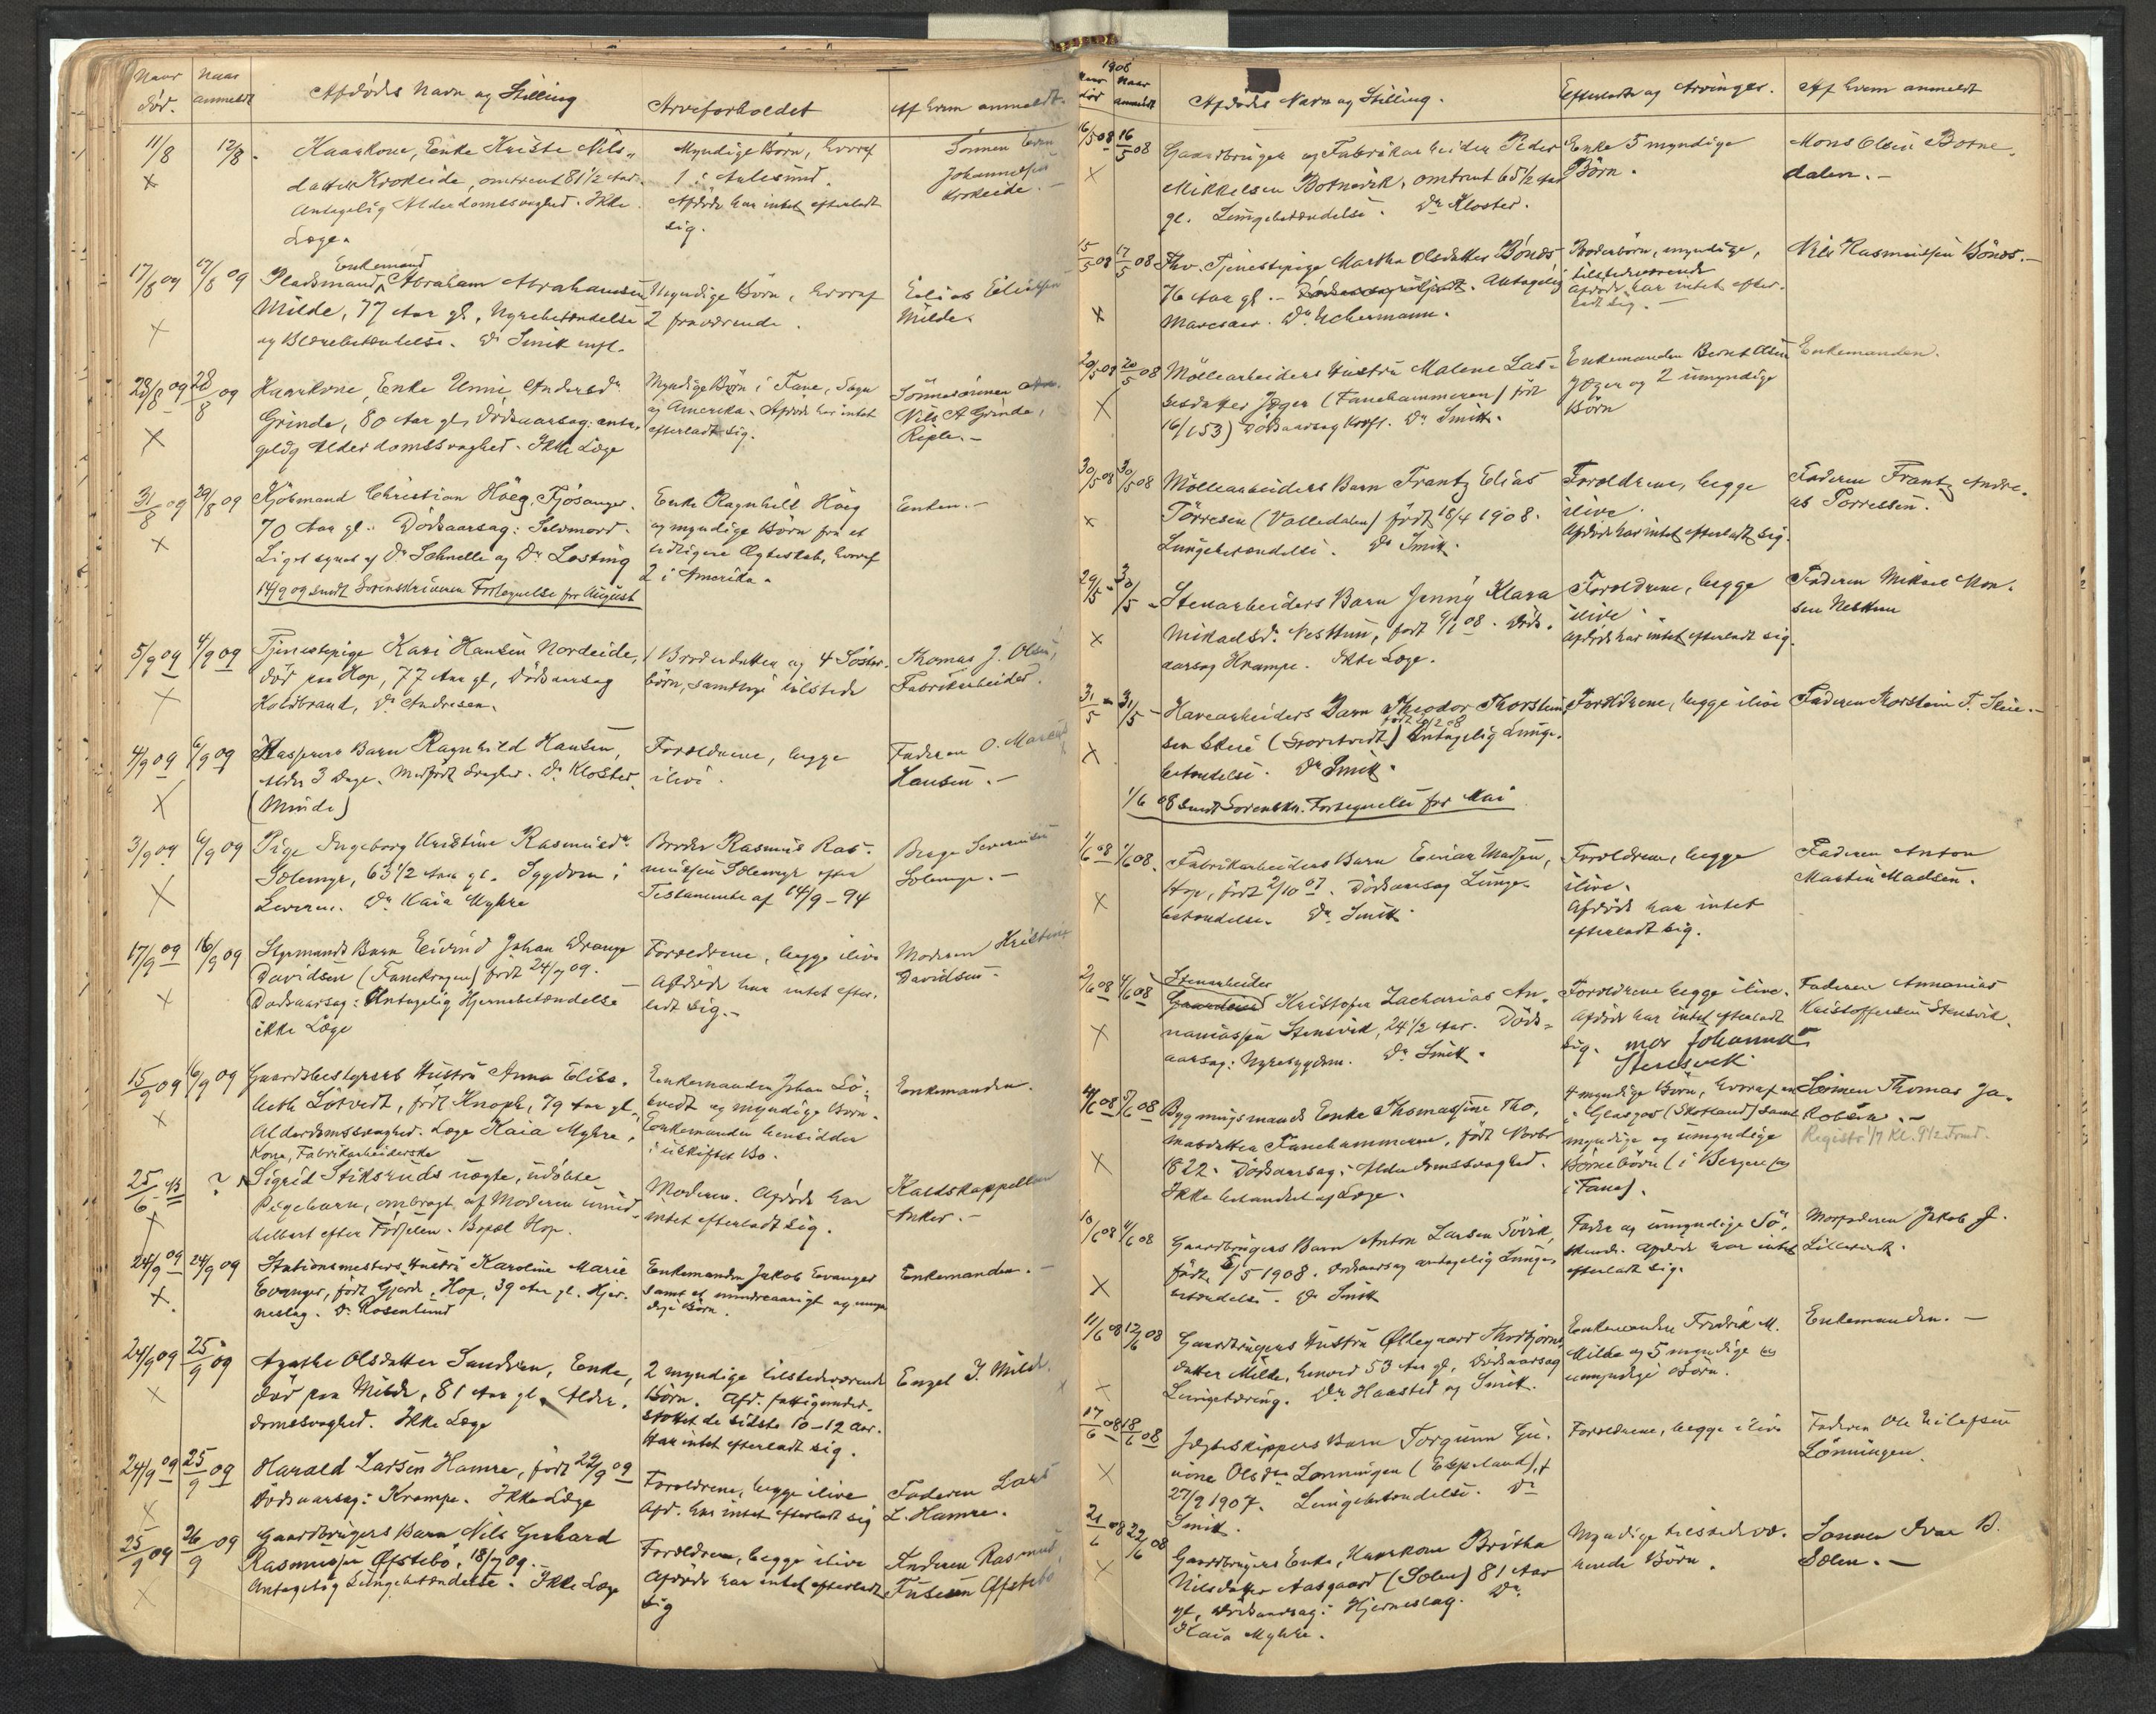 Naar død. Naar anmeldt Afdødes Navn og Stilling Arveforholdet Af hvem anmeldt.
11/8 12/8. Kaarkone, Enke Kriste Nils-
datter Krokeide, omtrent 81 1/2 Aar.
Antagelig Alderdomssvaghed. Ikke
Læge.
Myndige Børn, hvoraf
1 i Aalesund.
Afdøde har intet efterladt
sig.
Sønnen
Johannessen
Krokeide.-
17/8 09 17/8 09 Enkemand
Pladsmand, Abraham Abrahamsen
Milde, 77 Aar gl, Nyrebetændelse
og Blærebetændelse. Dr Smith
Myndige Børn, hvoraf
2 fraværende.
Elias
Milde.
28/8 09 28/8 09 Kaarkone, Enke Unni Andersdr
Grinde, 80 Aar gl, Dødsaarsag: anta-
gelig Alderdomssvaghed. Ikke Læge
Myndige Børn i Fane,
og Amerika. Afdøde har intet
efterladt sig.
Sønnesønnen
Nils A Grinde,
Riple.-
31/8 09 29/8 09 Kjøbmand Christian Høeg, Fjøsanger.
70 Aar gl. Dødsaarsag: Selvmord.
Liget synet af Dr Schnelle og Dr Losting
14/9 09 sendt Sorenskriveren Fortegnelse for August
Enke Ragnhild Høeg
og myndige Børn fra et
tidligere Ægteskab, hvoraf
2 i Amerika.
Enken.-
5/9 09 4/9 09 Tjenestepige Kari Hansen Nordeide,
død paa Hop, 77 Aar gl, Dødsaarsag
Koldbrand, Dr Andresen.
1 Broderdatter og 4 Søster-
børn, samtlige tilstede
Thomas J. Olsen,
Fabrikarbeider.
4/9 09 6/9 09 Kasserers Barn Ragnhild Hansen,
Alder 3 Dage. Medfødt Svaghed. Dr Kloster.
(Minde)
Forældrene, begge
ilive.
Faderen O. Marcus
Hansen.-
3/9 09 6/9 09 Pige Ingeborg Kristine Rasmusdr
Solemyr, 63 1/2 Aar gl. Sygdom i
Leveren. Dr Kaia Myhre
Broder Rasmus Ras-
mussen Solemyr efter
Testamente af 14/9-94
Brage Severinsen
Solemyr.-
17/9 09 16/9 09 Styrmands Barn Eivind Johan Drange
Davidsen (Fanekragen) født 24/7 09.
Dødsaarsag: Antagelig Hjernebetændelse
ikke Læge
Forældrene, begge ilive
Afdøde har intet efter-
ladt sig.-
Moderen Kristine
Davidsen.
15/9 09 16/9 09 Gaardsbestyrers Hustru Anna Elisa-
beth Løtvedt, født Knoph, 79 Aar gl.
Alderdomssvaghed. Læge Kaia Myhre,
Enkemanden Johan Lø-
tvedt og myndige Børn.
Enkemanden hensidder
i uskiftet Bo.
Enkemanden.
25/6 ? Kone, Fabrikarbeiderske
Sigrid Stiksruds uægte, udøbte
Pigebarn, ombragt af Moderen umid-
delbart efter Fødselen. Bopæl Hop.
Moderen. Afdøde har
intet efterladt sig.
Kaldskappellan
Anker.-
24/9 09 24/9 09 Stationsmesters Hustru Karoline Marie
Evanger, født Gjerde, Hop, 39 Aar gl. Hjer-
neslag. Dr Rosenlund
Enkemanden Jakob Evanger
samt et mindreaarigt og myn-
dige Børn.
Enkemanden.-
24/9 09 25/9 09 Agathe Olsdatter Sandven, Enke,
død paa Milde, 81 Aar gl, Alder-
domssvaghed. Ikke Læge
2 myndige tilstedeværende
Børn. Afd. fattigunder-
støttet de sidste 10-12 Aar.
Har intet efterladt sig.
Engel J. Milde
24/9 09 25/9 09 Harald Larsen Hamre, født 22/9 09
Dødsaarsag: Krampe. Ikke Læge
Forældrene, begge ilive
Afd. har intet efterladt sig
Faderen Lars
L. Hamre.
25/9 09 26/9 09 Gaardbrugers Barn Nils Gerhard
Rasmussen Øfstebø, 18/7 09.
Antagelig Lungebetændelse. Ikke Læge
Forældrene, begge ilive
Afdøde har intet efterladt
sig
Faderen Rasmus
Øfstebø
1908
Naar død Naar anmeldt Afdødes Navn og Stilling. Efterladte og Arvinger. Af hvem anmeldt
16/5 08 16/5 08 Gaardbruger og Fabrikarbeider Peder
Mikkelsen Botnevik, omtrent 65 1/2 Aar
gl. Lungebetændelse. Dr Kloster.
Enke 5 myndige
Børn.
Mons Olsen Botne-
dalen.-
15/5 08 17/5 08 Fhv. Tjenestepige Martha Olsdatter Bønæs
76 Aar gl.- Antagelig
Marasmus. Dr Uchermann.
Broderbørn, myndige,
tilstedeværende
Afdøde har intet efter-
ladt sig.-
Nils Rasmussen Bønæs.-
20/5 08 20/5 08 Møllearbeiders Hustru Malene Las-
sesdatter Jæger (Fanehammeren) født
16/1 53) Dødsaarsag Kræft. Dr Smith.
Enkemanden Bernt Olsen
Jæger og 2 umyndige
Børn
Enkemanden.
30/5 08 30/5 08 Møllearbeiders Barn Frantz Elias
Tørresen (Valledalen) født 18/4 1908.
Lungebetændelse. Dr Smith.
Forældrene, begge
ilive.
Afdøde har intet efterladt sig.
Faderen Frantz Andre-
as Torressen.
29/5 - 30/5 - Stenarbeiders Barn Jenny Klara
Mikaelsdr. Nesttun, født 6/1 08. Døds-
aarsag Krampe. Ikke Læge.
Forældrene, begge
ilive.
Afdøde har intet efterladt sig.
Faderen Mikael Mon-
sen Nesttun
31/5 - 31/5 - Havearbeiders Barn Theodor Thorstein-
sen Skeie (Storetvedt) født 20/2 08 Antagelig Lunge-
betændelse. Dr Smith.
1/6 08 sendt Sorenskr. Fortegnelse for Mai
Forældrene, begge ilive
Faderen Thorstein T. Skeie.-
1/6 08 1/6 08. Fabrikarbeiders Barn Einar Madsen,
Hop, født 2/10 07. Dødsaarsag Lunge-
betændelse. Dr. Smith.
Forældrene, begge
ilive.
Afdøde har intet
efterladt sig.
Faderen Anton
Martin Madsen.
2/6 08 4/6 08 Stenarbeider
Kristofer Zacharias An-
naniassen Stensvik, 24 1/2 Aar. Døds-
aarsag: Nyresygdom. Dr Smith.
Forældrene begge ilive.
Afdøde har intet efterladt
sig. mor Johanna
Stensvik
Faderen Annanias
Kristoffersen Stensvik.
4/6 08 5/6 08 Bygningsmands Enke Thomasine Tho-
masdatter Fanehammeren, født Novbr
1822. Dødsaarsag: Alderdomssvaghed.
Ikke behandlet af Læge.
4 myndige Børn, hvoraf en
i Glasgow (Skotland) samt
myndige og umyndige
Børnebørn (i Bergen og
i Fane).
Sønnen Thomas Ja-
kobsen.-
Registr 1/7 Kl. 9 1/2 Form.
10/6 08 11/6 08 Gaardbrugers Barn Anton Larsen Tvivik,
født 5/5 1908. Dødsaarsag antagelig Lunge-
betændelse. Dr Smith
Fader og umyndige Sø-
skende. Afdøde har intet
efterladt sig.
Morfaderen Jakob J.
Lilletvedt.
11/6 08 12/6 08 Gaardbrugers Hustru Øllegaard Thorbjørns-
datter Milde, henved 53 Aar gl, Dødsaarsag
Lungetæring. Dr. Haarsted og Smith.
Enkemanden Fredrik M.
Milde og 5 myndige og
umyndige Børn.
Enkemanden.-
17/6 08 18/6 08 Jægteskippers Barn Torgunn Gu-
rine Olsdr Lønningen (Espeland), f
27/9 1907. Lungebetændelse. Dr
Smith.
Forældrene, begge ilive
Faderen Ole Eilefsen
Lønningen.
21/6 08 22/6 08 Gaardbrugers Enke, Kaarkone Britha
Nilsdatter Aasgaard (Sølen) 81 Aar
gl, Dødsaarsag: Hjerneslag. Dr.
Kaia Myhre.
Myndige tilstedevæ-
rende Børn.
Sønnen Ivar B.
Sølen.-